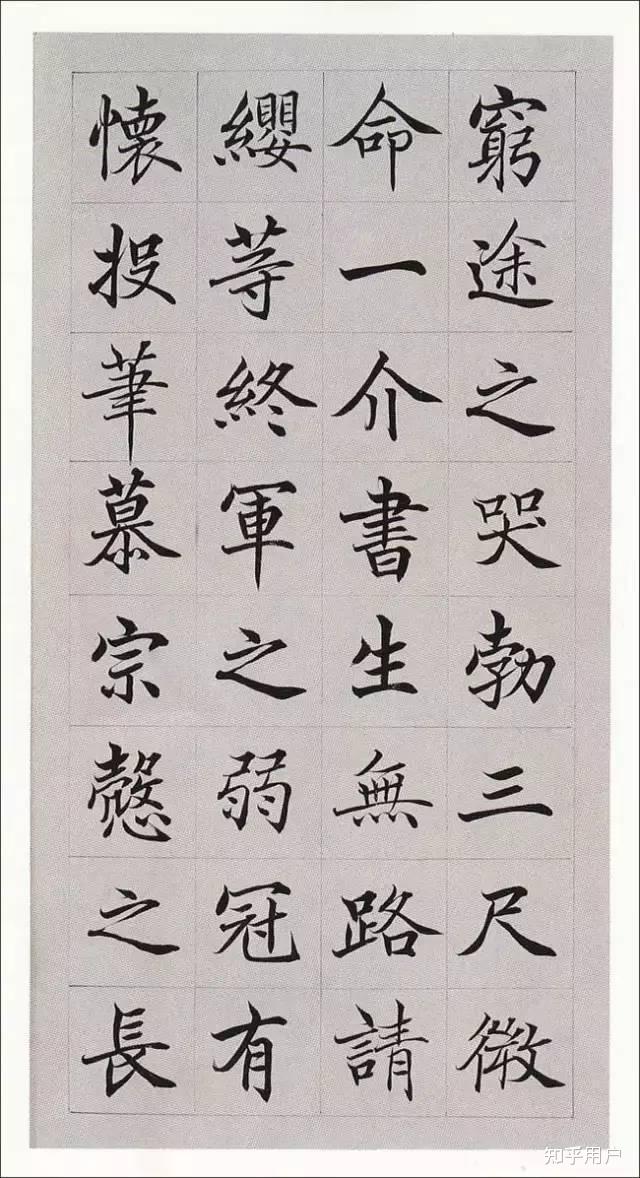 窮途之哭勃三尺微
命一介書生無路請
纓等終軍之弱冠有
懐投筆慕宗慤之長
知乎用户